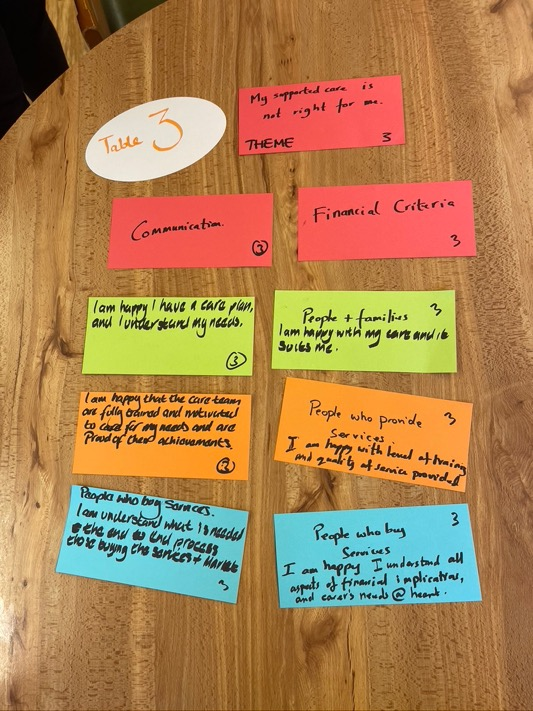 Table 3
My supported care is
not right for me.
THEME 3
Communication.
3
Financial Criteria
3
I am happy I have a care plan,
and I understand my needs.
3
People + families 3
I am happy with my care and it
suits me.
I am happy that the care team
are fully trained and motivated
to care for my needs and are
Proud of their achievements.
3
People who provide 3
Services.
I am happy with level of training
and quality of service provided
People who buy Services.
I am understand what is needed
the end to end process
those buying the services + Market
3
People who buy 3
Services
I am happy I understand all
aspects of financial implications,
and carer's needs @ heart.